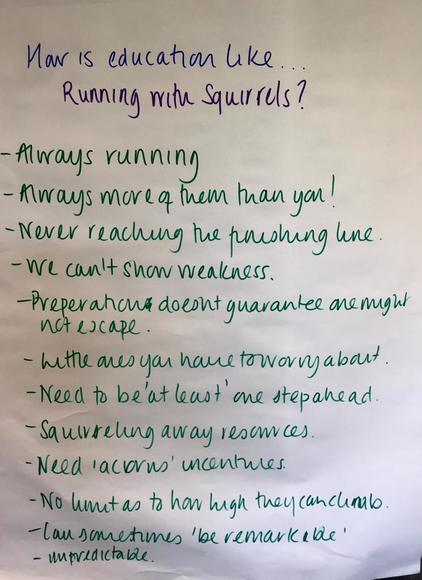 How is education like...
Running with Squirrels?
- Always running
- Always more of them than you!
- Never reaching the finishing line.
- We can't show weakness.
- Preperation doesnt guarantee one might
not escape.
- Little ones you have to worry about.
- Need to be 'at least' one step ahead.
- Squirreling away resources.
- Need 'acorns' incentives.
- No limit as to how high they can climb.
- Can sometimes 'be remarkable'
- unpredictable.